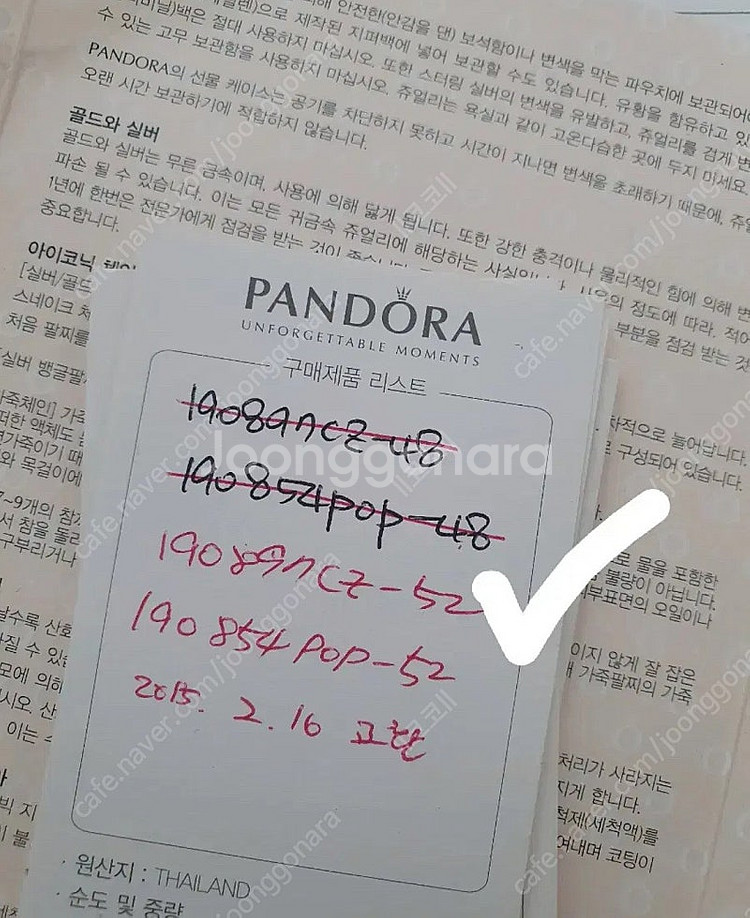 해 안전한(안감을 댄) 보석함이나 변색을 막는 파우치에 보관되어야
제작된 지퍼백에 넣어 보관할 수도 있습니다. 유황을 함유하고 있
백은 절대 사용하지 마십시오. 또한 스터링 실버의 변색을 유발하고, 쥬얼리를 검게 변
수 있는 고무 보관함을 사용하지 마십시오. 쥬얼리는 욕실과 같이 고온다습한 곳에 두지 마세요.
PANDORA의 선물 케이스는 공기를 차단하지 못하고 시간이 지나면 변색을 초래하기 때문에, 쥬얼
오랜 시간 보관하기에 적합하지 않습니다.
골드와 실버
골드와 실버는 무른 금속이며, 사용에 의해 닳게 됩니다. 또한 강한 충격이나 물리적인 힘에 의해 변
파손 될 수 있습니다. 이는 모든 귀금속 쥬얼리에 해당하는 사실입니다. 사용의 정도에 따라, 적어
1년에 한번은 전문가에게 점검을 받는 것이 좋습니다. 부분을 점검 받는 것
중요합니다.
아이코닉 체인
[실버/골드
스네이크 체
처음 팔찌를
실버 뱅글팔
PANDORA
UNFORGETTABLE MOMENTS
구매제품 리스트
190891CZ-48
190854POP-48
190891CZ-52
190854POP-52
2015. 2. 16 교환
원산지 : THAILAND
순도 및 중량
차적으로 늘어납니다.
구성되어 있습니다.
로 물을 포함한
불량이 아닙니다.
부표면의 오일이나
이지 않게 잘 잡은
가죽팔찌의 가죽
처리가 사라지는
지게 합니다.
척제(세척액)를
여내며 코팅이
joonggonara
cafe.naver.com/joonggonara